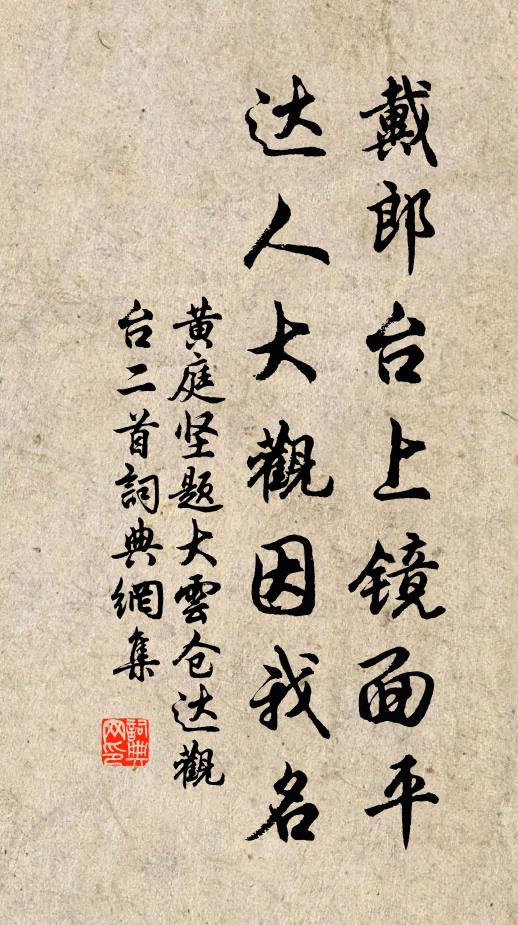 戴郎台上镜面平
达人大觀因我名
黄庭坚题大雲仓达觀
台二首詞典網集
詞典
网印